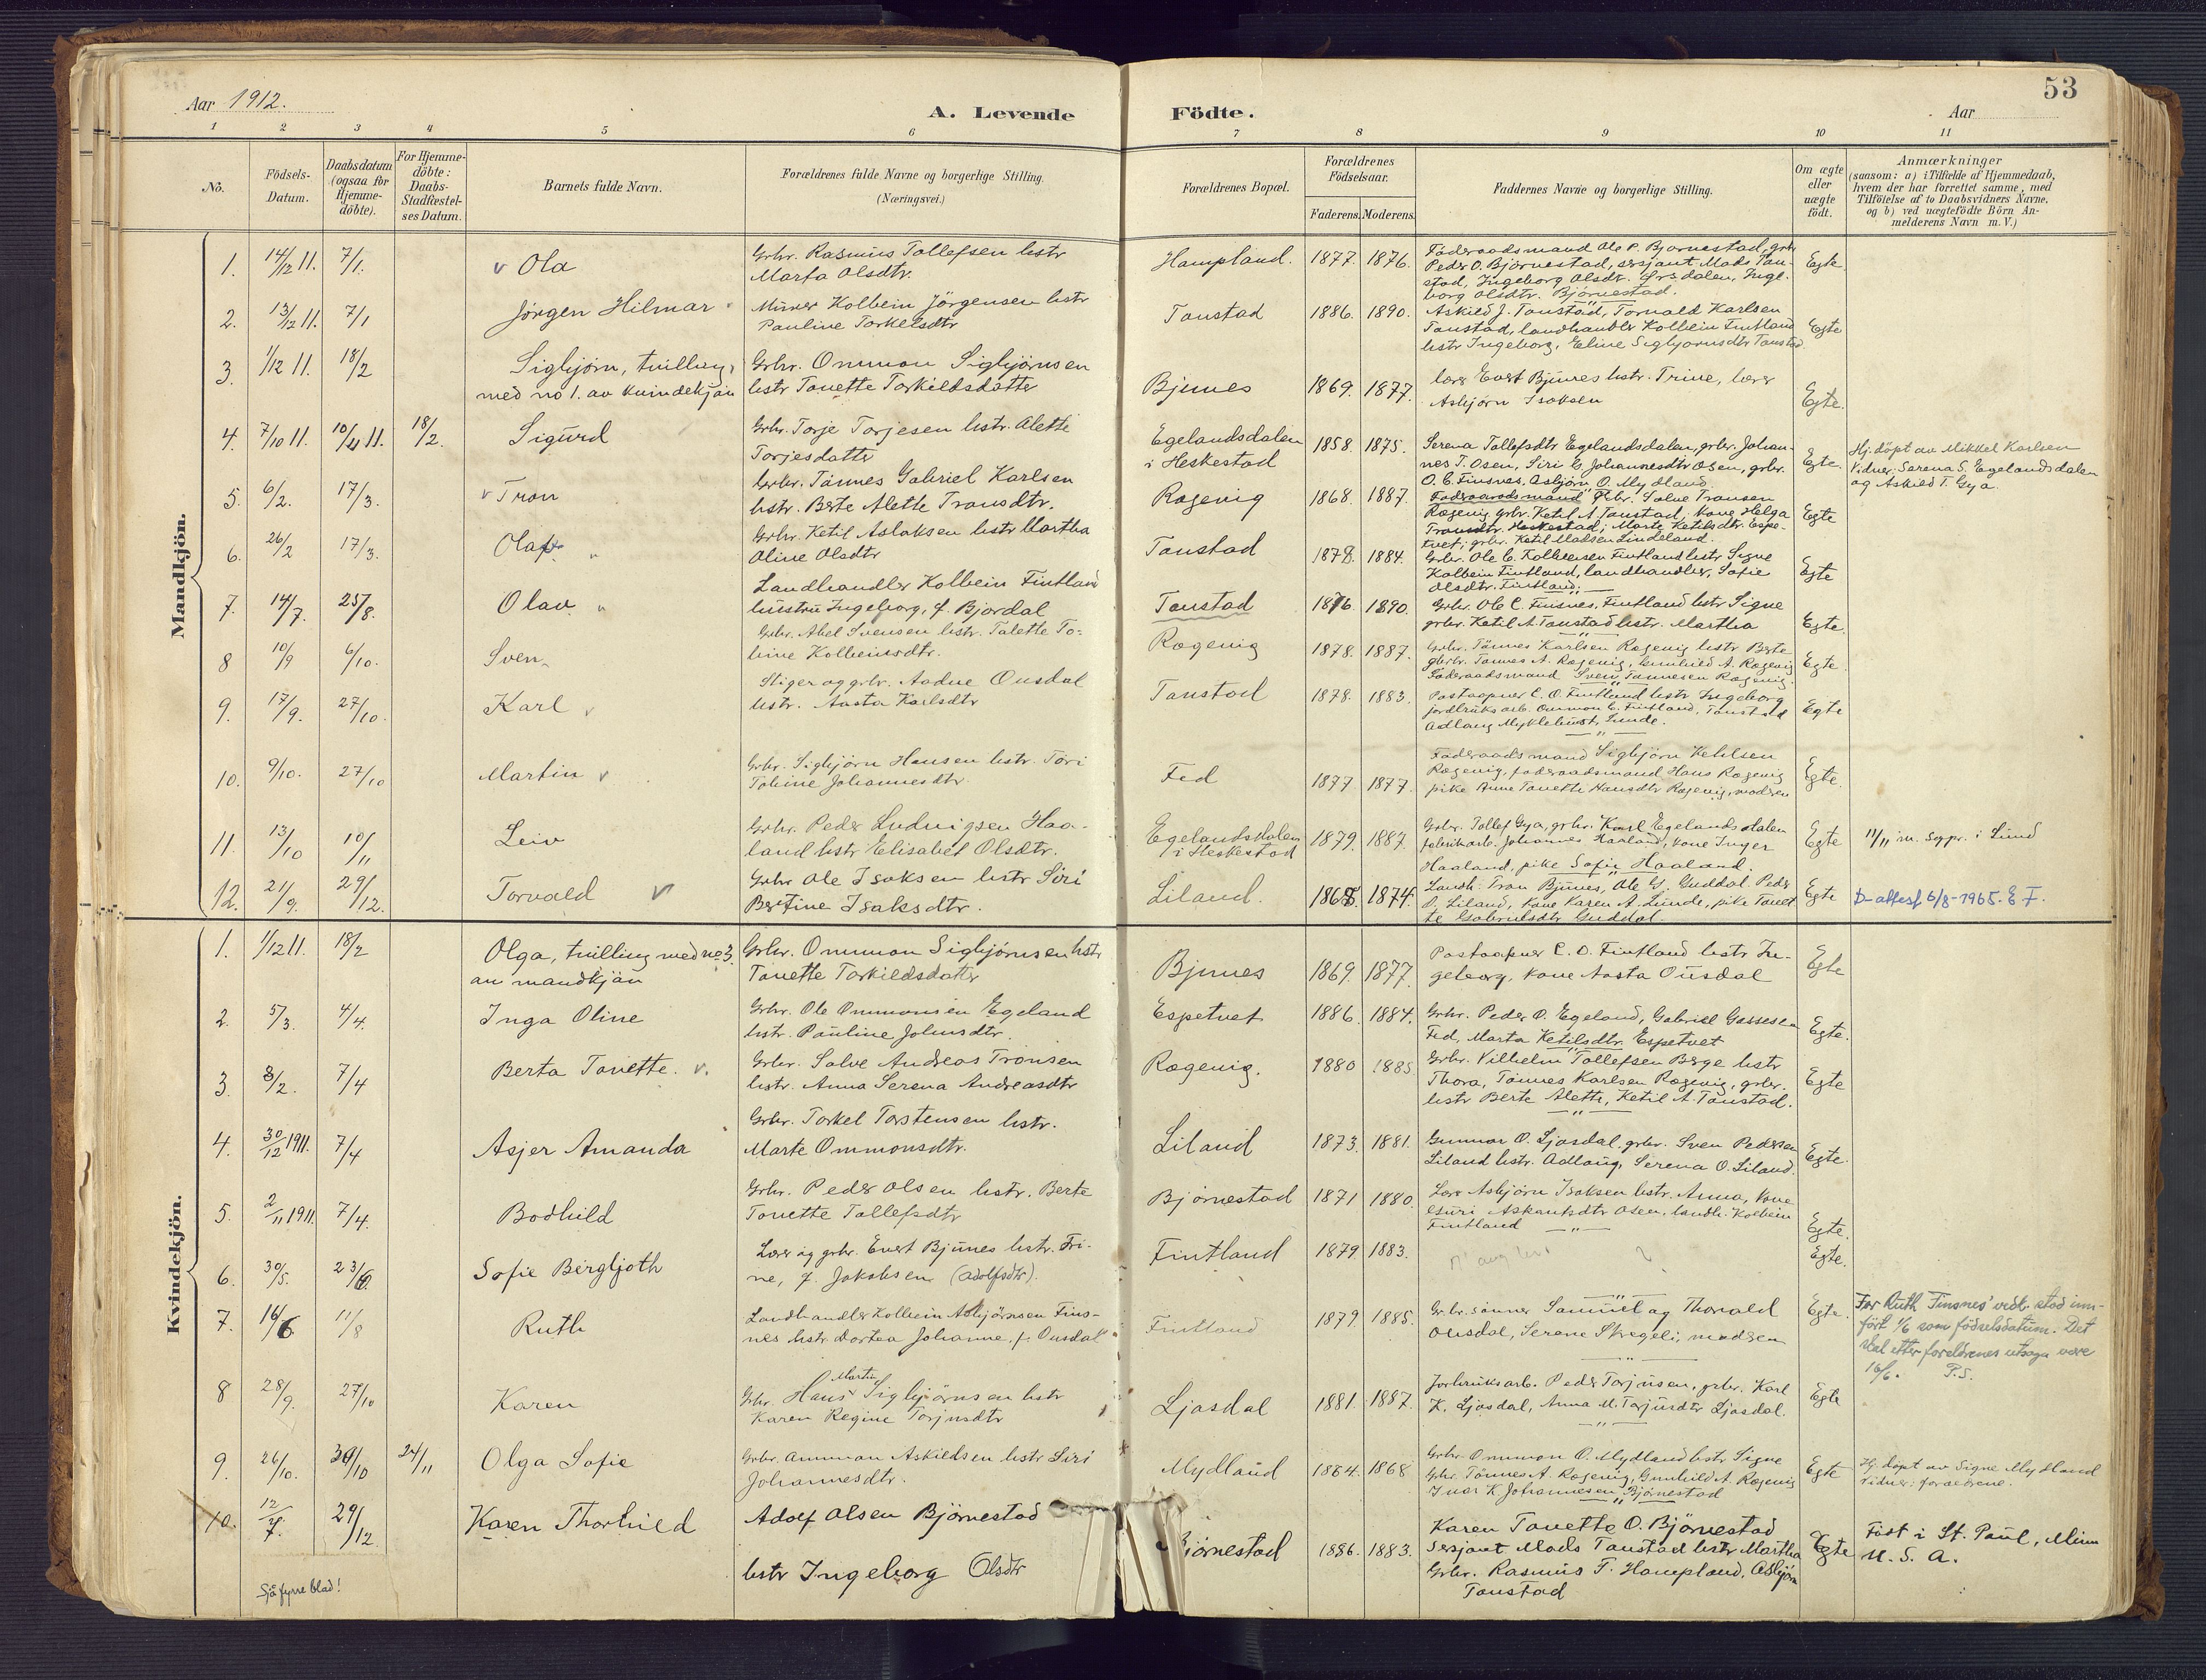 53
Aar 1912.
A. Levende
Födte.
Aar
1 2 3 4 5 6 7 8 9 10 11
No.
Födsels-
Datum.
Daabsdatum
(ogsaa for
Hjemme-
döbte).
For Hjemme-
döbte:
Daabs-
Stadfæstel-
ses Datum.
Barnets fulde Navn.
Forældrenes fulde Navne og borgerlige Stilling.
(Næringsvei.)
Forældrenes Bopæl.
Forældrenes
Födselsaar.
Faderens. Moderens.
Faddernes Navne og borgerlige Stilling.
Om ægte
eller
uægte
födt.
Anmærkninger
(saasom: a) i Tilfælde af Hjemmedaab,
hvem der har forrettet samme, med
Tilföielse af to Daabsvidners Navne,
og b) ved uægtefödte Börn An-
melderens Navn m.V.)
Mandkjön.
1. 14/12 11. 7/1. Ola
Grbr. Rasmus Tollefsen hstr
Marta Olsdtr.
Hampland. 1877. 1876.
Föderaadsmand Ole P. Bjørnestad, grbr
Peder O. Bjørnestad, sersjant Mads Tan-
stad, Ingeborg Olsdtr. Ørsdalen, Inge-
borg Olsdtr. Bjørnestad.
Egte
2. 13/12 11. 7/1 Jørgen Hilmar
Murer Kolbein Jörgensen hstr
Pauline Torkelsdtr
Tonstad 1886. 1890.
Askild J. Tonstad, Torvald Karlsen
Tonstad, landhandler Kolbein Fintland
hstr Ingeborg, Eline Sigbjørnsdtr Tonstad.
Egte
3. 1/12 11. 18/2 Sigbjørn, tvilling
med no 1. av kvindekjøn
Grbr. Ommon Sigbjørnsen
hstr Tonette Torkildsdatter
Bjunes 1869. 1877.
lærer Evert Bjunes hstr. Trine, lærer
Asbjørn Isaksen
Egte.
4. 7/10 11. 10/11 11. 18/2. Sigurd
Grbr. Torje Torjesen hstr. Alette
Torjesdatter
Egelandsdalen
i Heskestad
1858. 1875.
Serena Tollefsdtr Egelandsdalen, grbr. Johan-
nes T. Osen, Siri C. Johannesdtr Osen, grbr.
O. C. Finsnes, Asbjørn O. Mydland.
Egte.
Hj. döpt av Mikkel Karlsen
Vidner: Serena S. Egelandsdalen
og Askild T. Gya.
5. 6/2. 17/3. Tron
Grbr. Tønnes Gabriel Karlsen
hstr. Berte Alette Tronsdtr.
Rægevig 1868. 1887.
Föderaadsmand Grbr. Salve Tronsen
Rægevig, grbr. Ketil A. Tonstad, kone Helga
Tronsdtr. Heskestad; Marte Ketilsdtr. Espe-
tvet; grbr. Ketil Madsen Lindeland.
Egte
6. 26/2 17/3. Olaf
Grbr. Ketil Aslaksen hstr Martha
Oline Olsdtr
Tonstad 1878. 1884.
Grbr. Ole C. Kolbeinsen Fintland hstr Signe
Kolbein Fintland, landhandler, Sofie
Olsdtr. Fintland.
Egte
7. 14/7. 25/8. Olav
Landhandler Kolbein Fintland
hustru Ingeborg, f. Bjordal
Tonstad 1876. 1890.
Grbr. Ole C. Finsnes, Fintland hstr Signe
grbr. Ketil A. Tonstad hstr. Martha
Egte.
8 10/9 6/10. Sven
Grbr. Abel Svensen hstr. Talette To-
bine Kolbeinsdtr.
Rægevig 1878. 1887.
Grbr. Tønnes Karlsen Rægevig hstr Berte
grbr. Tønnes A. Rægevig, Gunhild A. Rægevig
Föderaadsmand Sven Tønnesen Rægevig.
Egte.
9. 17/9. 27/10. Karl
Stiger og grbr. Aadne Ousdal
hstr. Aasta Karlsdtr
Tonstad 1878. 1883.
Postaapner C. O. Fintland hstr Ingeborg
jordbruksarb. Ommon C. Fintland, Tonstad
Adlaug Myklebust, Lunde.
Egte
10. 9/10. 27/10 Martin
Grbr. Sigbjørn Hansen hstr. Töri
Tobine Johannesdtr.
Fed 1877. 1877.
Föderaadsmand Sigbjørn Ketilsen
Rægevig, føderaadsmand Hans Rægevig
pike Anne Tonette Hansdtr Rægevig, moderen
Egte.
11. 13/10 10/11 Leiv
Grbr. Peder Ludvigsen Haa-
land hstr Elisabet Olsdtr.
Egelandsdalen
i Heskestad
1879. 1887.
Grbr. Tollef Gya, grbr. Karl Egelandsdalen
fabrikarb. Johannes Haaland, kone Inger
Haaland, pike Sofie Haaland.
Egte
11/11 m. sogpr. i Lund
12. 21/9. 29/12. Torvald
Grbr Ole Isaksen hstr Siri
Bertine Isaksdtr.
Liland. 1865. 1874.
Landh. Tron Bjunes, Ole G. Guddal. Peder
P. Liland, kone Karen A. Lunde, pike Tonet-
te Gabrielsdtr Guddal
Egte
D-attest 6/8-1965. E F.
Kvindekjön.
1. 1/12 11. 18/2 Olga, tvilling med no 3.
av mandkjøn
Grbr. Ommon Sigbjørnsen hstr
Tonette Torkildsdatter
Bjunes 1869. 1877.
Postaapner C. O. Fintland hstr In-
geborg, kone Aasta Ousdal
Egte
2. 5/3. 4/4. Inga Oline
Grbr. Ole Ommonsen Egeland
hstr. Pauline Johnsdtr.
Espetvet 1886. 1884.
Grbr. Peder O. Egeland, Gabriel Gassesen
Fed, Marta Ketilsdtr. Espetvet
Egte.
3. 8/2. 7/4 Berta Tonette.
Grbr. Salve Andreas Tronsen
hstr. Anna Serena Andreasdtr
Rægevig. 1880 1885
Grbr. Vilhelm Tollefsen Berge hstr
Thora, Tønnes Karlsen Rægevig, grbr.
hstr Berte Alette, Ketil A. Tonstad.
Egte
4. 30/12 1911. 7/4 Asjer Amanda
Grbr. Torkel Torstensen hstr.
Marte Ommonsdtr.
Liland 1873. 1881.
Gunnar O. Ljosdal, grbr. Sven Pedersen
Liland hstr. Adlaug, Serena O. Liland.
Egte.
5. 2/11 1911. 7/4. Bodhild
Grbr. Peder Olsen hstr. Berte
Tonette Tollefsdtr
Bjørnestad 1871 1880
Lærer Asbjørn Isaksen hstr. Anna, kone
Guri Askautsdtr Osen, landh. Kolbein
Fintland
Egte.
6. 30/5. 23/6. Sofie Bergljoth
Lærer og grbr. Evert Bjunes hstr. Tri-
ne, f. Jakobsen (Adolfsdtr).
Fintland 1879. 1883.
Egte.
7. 16/6 11/8 Ruth
Landhandler Kolbein Asbjørnsen Fins-
nes hstr Dortea Johanne, f. Ousdal
Fintland 1879. 1885.
Gr.br.sønner Samuel og Thorvald
Ousdal, Serene Skregeli, moderen
Egte.
For Ruth Finsnes' vedk. stod inn-
fört 1/6 som födselsdatum. Det
skal etter foreldrenes utsagn være
16/6. P.S.
8 28/9. 27/10 Karen
Martin
Grbr. Hans Sigbjørnsen hstr
Karen Regine Torjusdtr
Ljosdal 1881. 1887.
Jorbruksarb. Peder Torjusen, grbr. Karl
K. Ljosdal, Anna M. Torjusdtr Ljosdal.
Egte
9. 26/10. 30/10 24/11 Olga Sofie
Grbr. Ommon Askildsen hstr Siri
Johannesdtr.
Mydland 1864. 1868
Grbr. Ommon O. Mydland hstr Signe
Grbr. Tønnes A. Rægevig, Gunhild A. Rægevig
Ivar K. Johannesen, Bjørnestad
Egte
Hj. döpt av Signe Mydland
vidner: forældrene.
10. 12/7. 29/12 Karen Thorhild
Adolf Olsen Bjørnestad
hstr Ingeborg Olsdtr
Bjørnestad 1886. 1883.
Karen Tonette O. Bjørnestad
Sersjant Mads Tonstad hstr Martha
Grbr. Rasmus T. Hampland, Asbjørn
Tonstad
Egte
Födt i St. Paul, Minn
U. S. A.
Sjå fyrre blad!